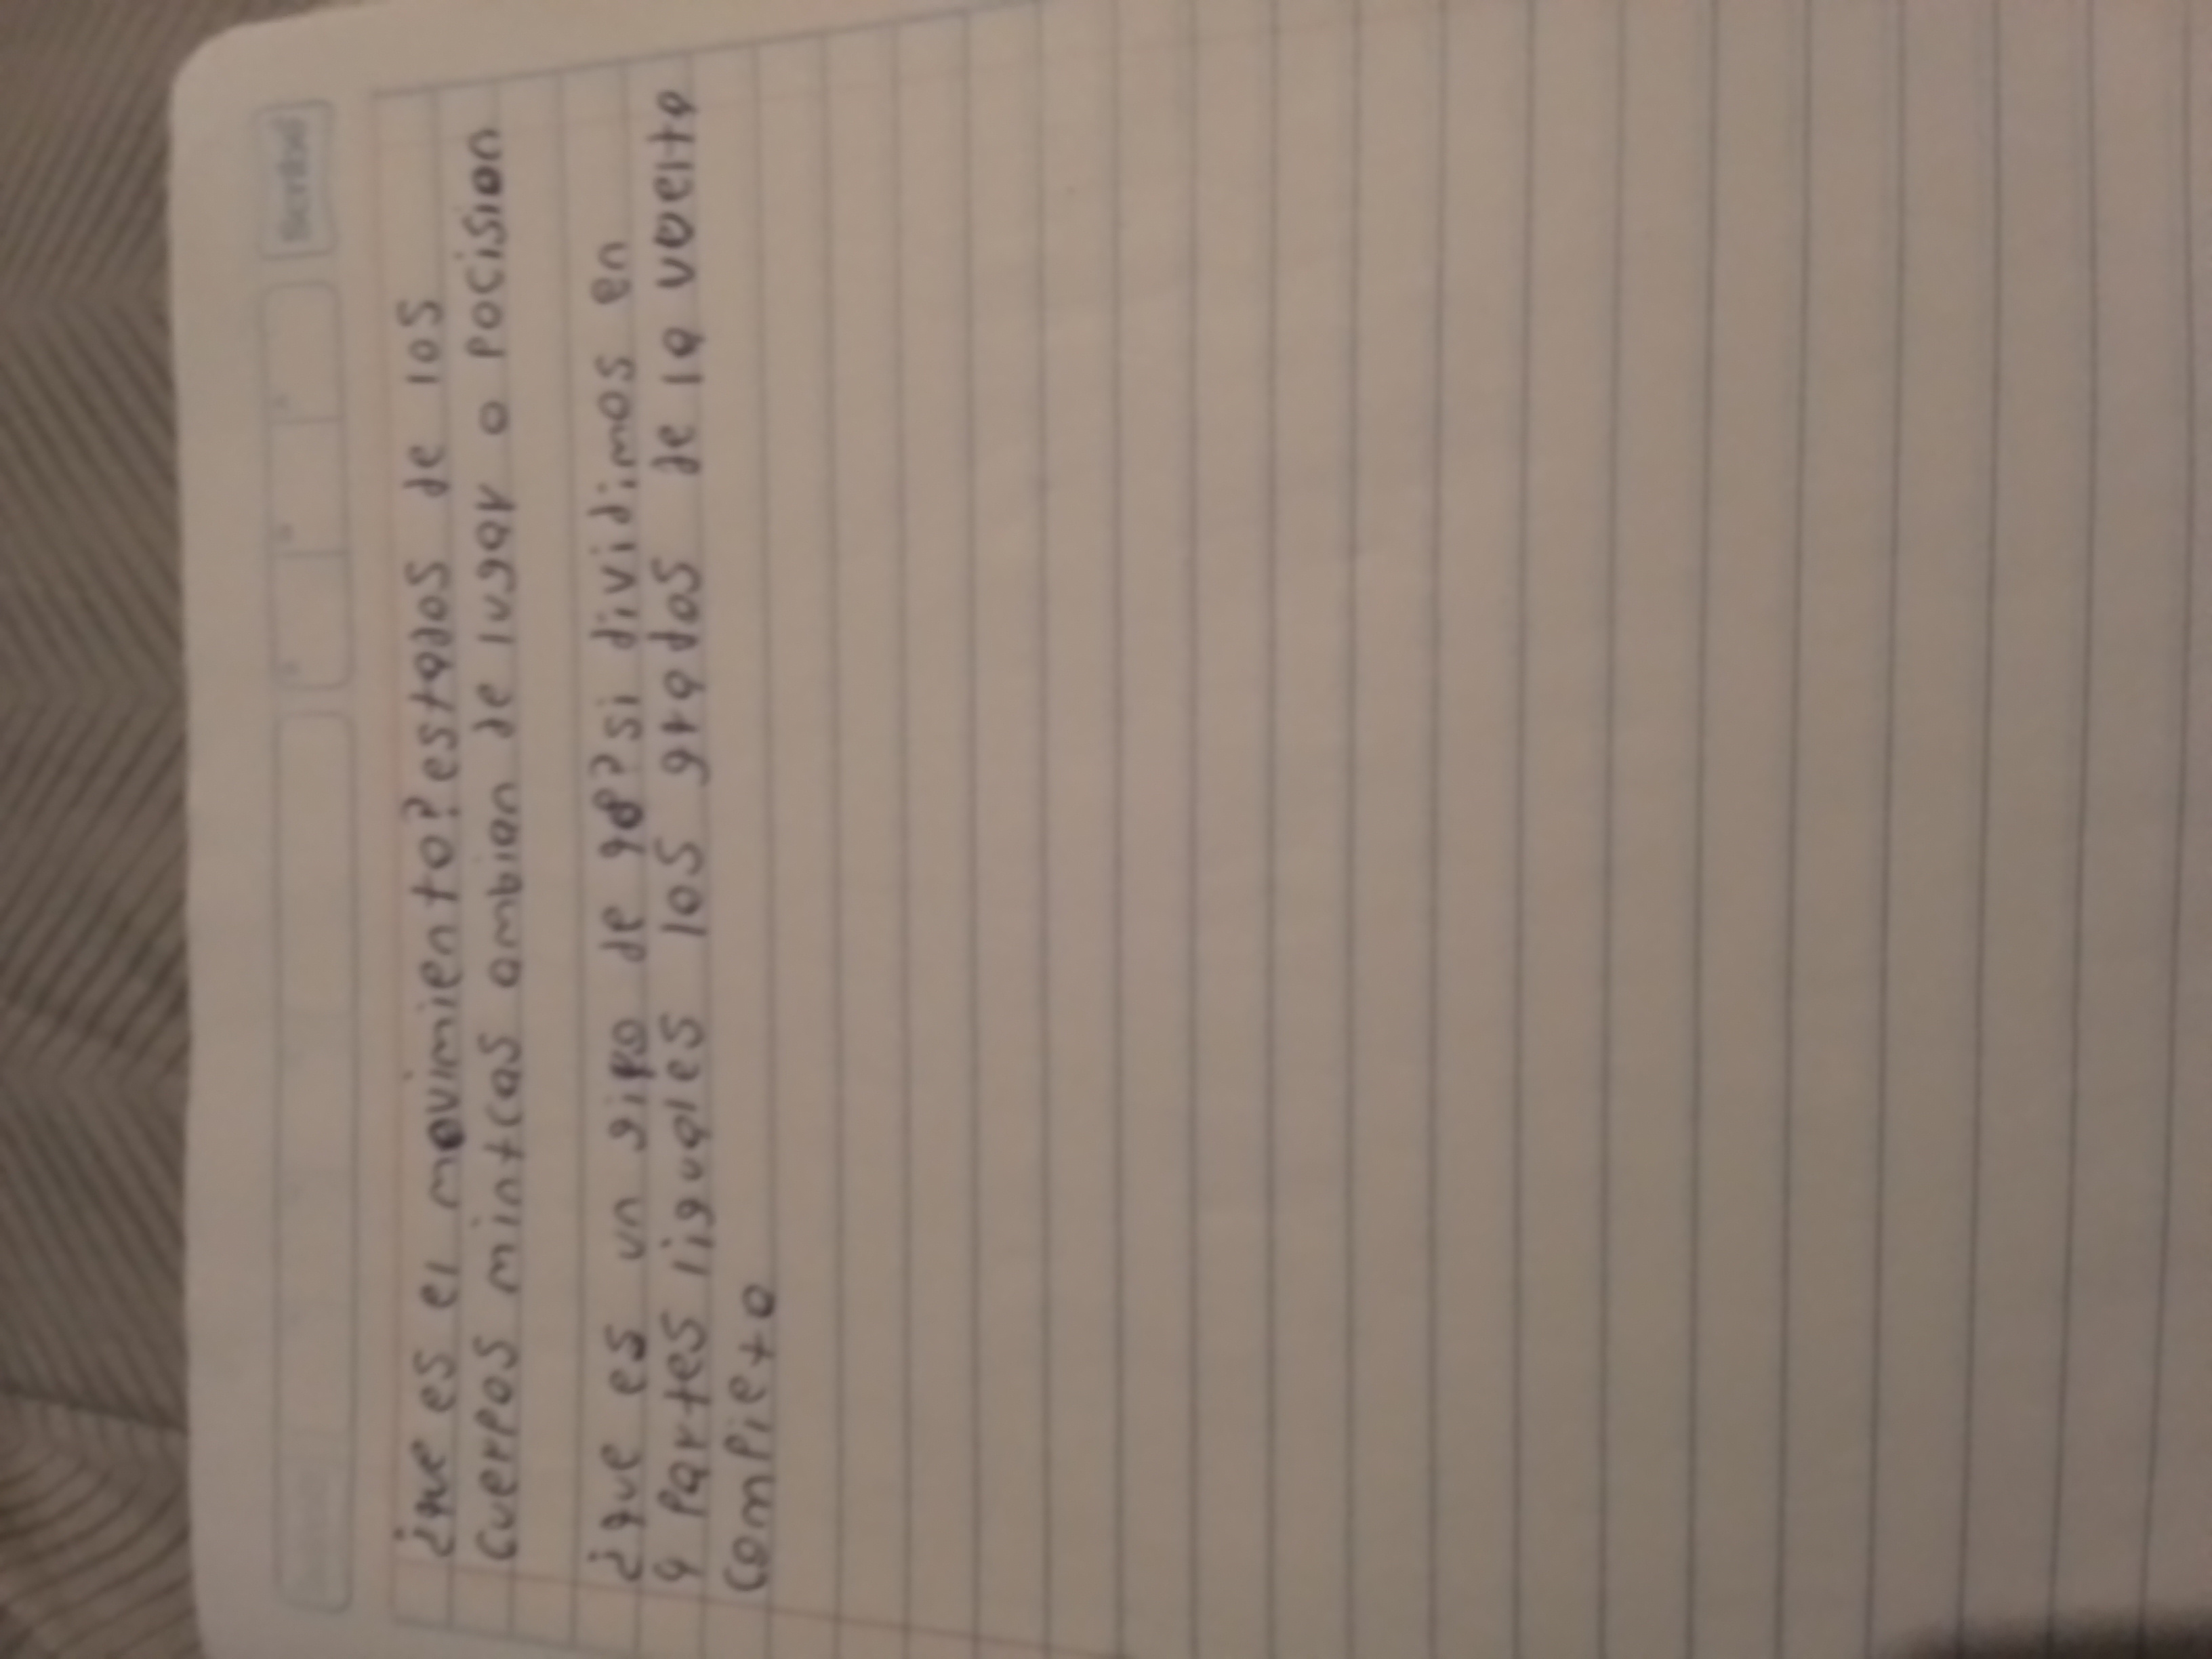 Scribe
¿que es el movimiento? estados de los
cuerpos mintcas ambian de lugar o pocision
¿que es un giro de 90? si dividimos en
4 partes iiguales los grados de la vuelta
completa